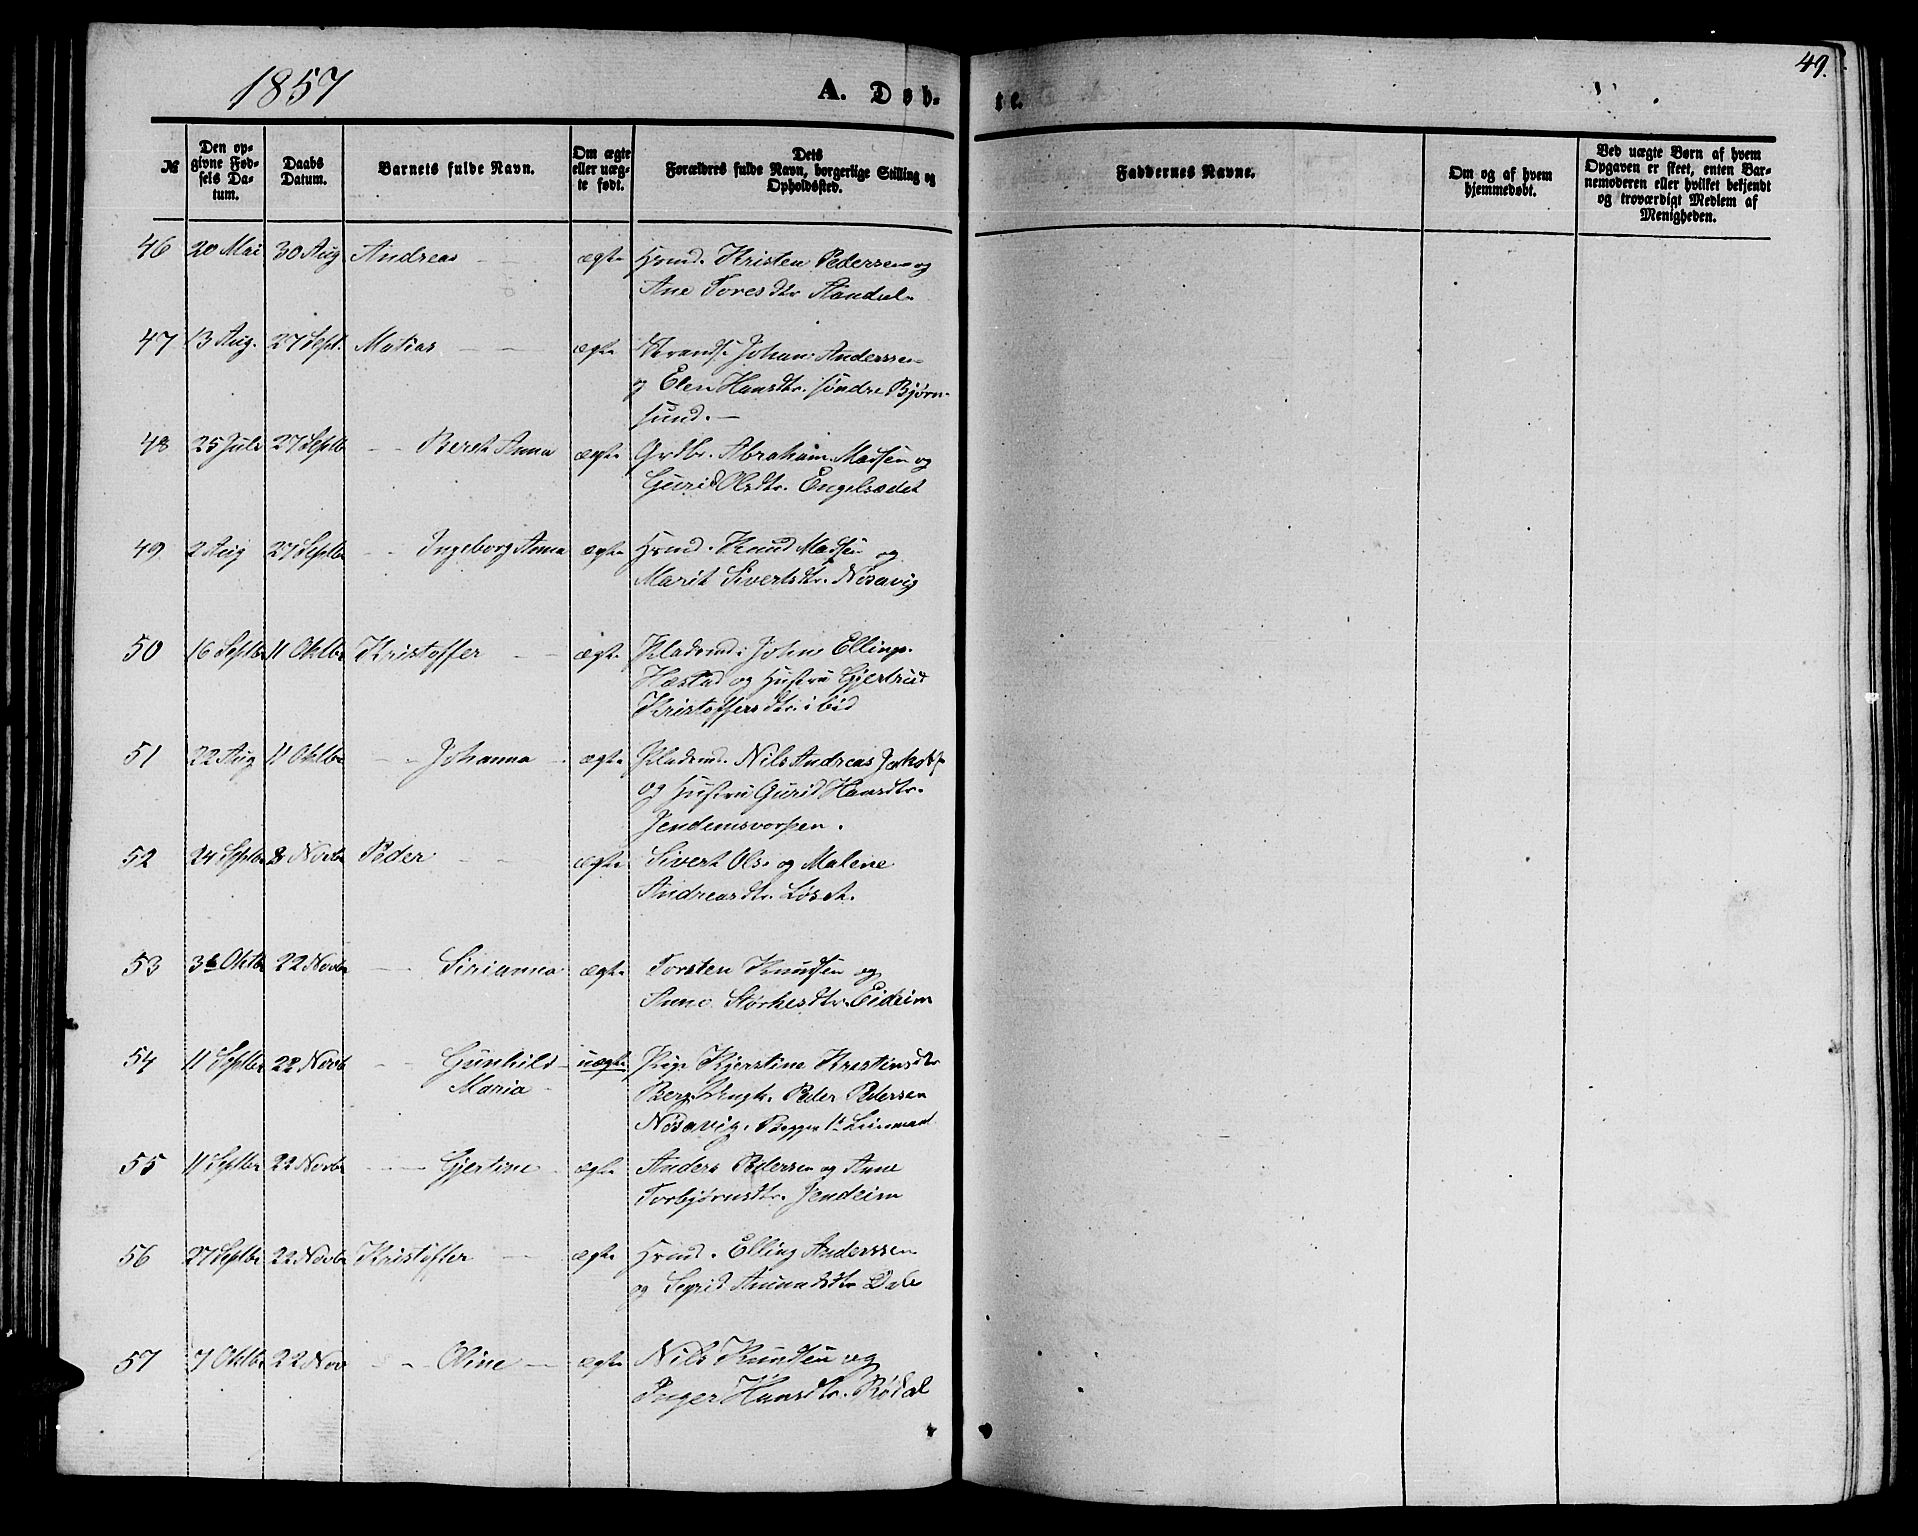 1857
A. Døb-
te.
49.
№
Den op-
givne Fød-
sels Da-
tum.
Daabs
Datum.
Barnets fulde Navn.
Om ægte
eller uæg-
te født.
Dets
Forældres fulde Navn, borgerlige Stilling og
Opholdssted.
Faddernes Navne.
Om og af hvem
hjemmedøbt.
Ved uægte Børn af hvem
Opgaven er skeet, enten Bar-
nemoderen eller hvilket bekjendt
og troværdigt Medlem af
Menigheden.
46 20 Mai 30 Aug Andreas ægte Hrmd. Kristen Pedersen og
Ane Toresdtr
47 13 Aug. 27 Sept. Matias ægte Johan Anderssen
og Elen Hansdtr. søndre Bjørn-
sund.
48 25 Juli 27 Septb Beret Anna ægte Grdbr. Abraham Madsen og
Gurid Olsdtr. Engelsædet
49 2 Aug 27 Septbr Ingeborg Anna ægte Hrmd. Knud Madsen og
Marit Sivertsdtr. Nøsavig
50 16 Septbr 11 Oktbr Kristoffer ægte Pladsmd: John Ellings.
Hæstad og Hustru Gjertrud
Kristoffersdtr. ibid
51 22 Aug 11 Oktbr Johanna ægte Pladsmd. Nils Andreas Jakobs
og Hustru Gurid Hansdtr.
Jendemsvorpen.
52 24 Septbr 8 Novbr Peder ægte Sivert Ols. og Malene
Andreasdtr. Løset.
53 Oktbr 22 Novbr Sirianna ægte Torsten Knudsen og
Anne Størkesdtr. Eideim
54 11 Septbr 22 Novb Gunhild uægte Pige Kjerstine Kristensdtr
Maria Berg. Ungk. Peder Pedersen
Nøsavig. Begges 1te Leiermaal
55 11 Septbr 22 Novbr Gjertine ægte Anders Pedersen og Anne
Torbjørnsdtr. Jendeim
56 27 Septbr 22 Novbr Kristoffer ægte Hrmd. Elling Anderssen
og Segrid Amundsdtr Dale
57 7 Oktbr 22 Nov Oline ægte Nils Knudsen og
Inger Hansdtr. Rødal